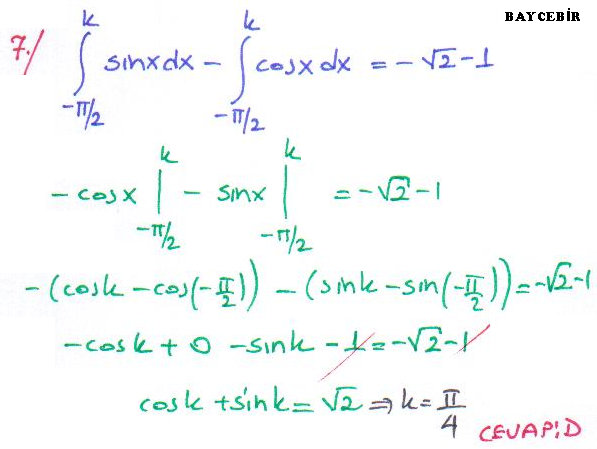 BAYCEBİR
7./ ∫_{-π/2}^{k} sinx dx − ∫_{-π/2}^{k} cosx dx = −√2−1
−cosx |_{-π/2}^{k} − sinx |_{-π/2}^{k} = −√2−1
−(cosk − cos(−π/2)) − (sink − sin(−π/2)) = −√2−1
−cosk + 0 − sink − 1 = −√2−1
cosk + sink = √2 ⇒ k = π/4
CEVAP: D